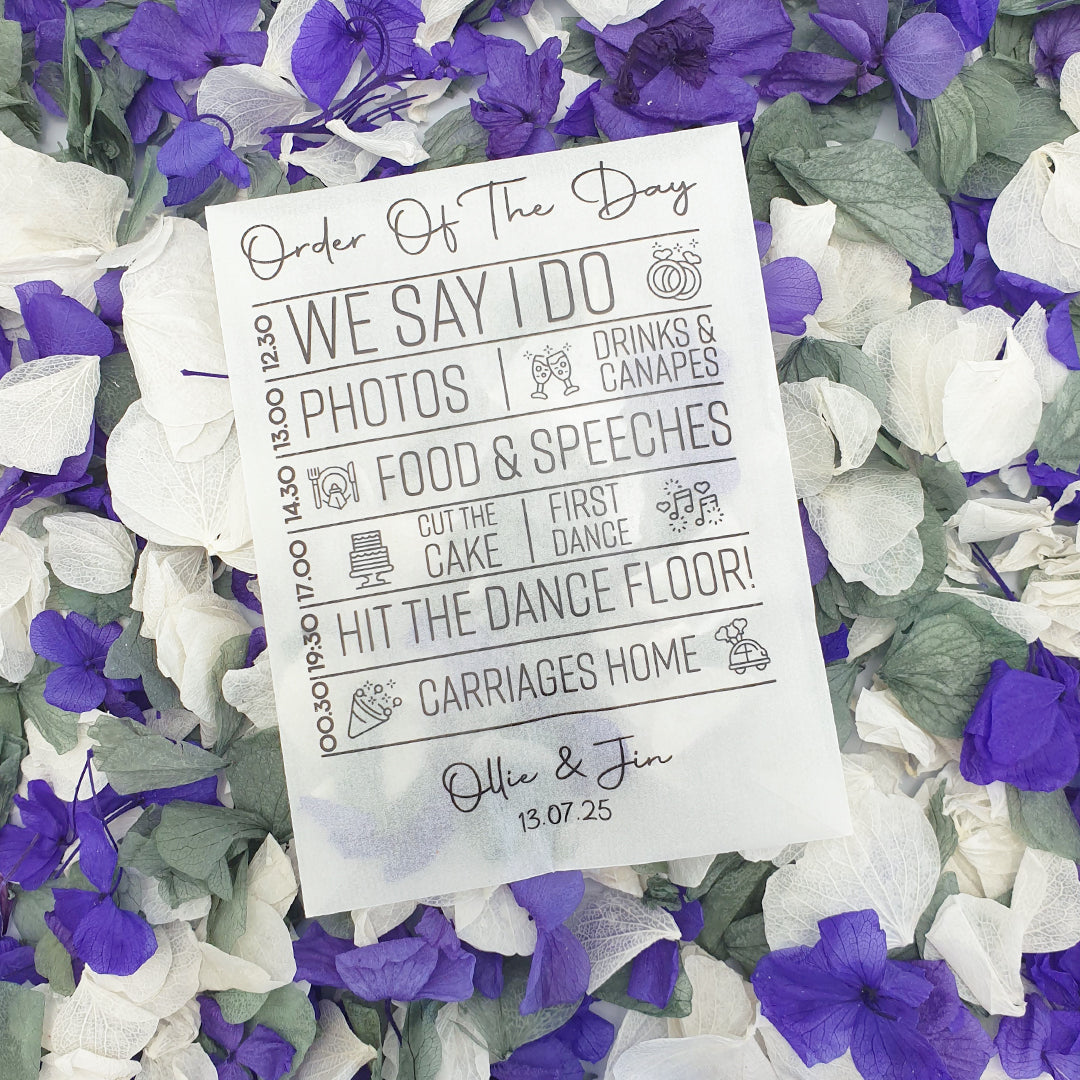 Order Of The Day
12.30 WE SAY I DO
13.00 PHOTOS
DRINKS &
CANAPES
14.30 FOOD & SPEECHES
17.00 CUT THE
CAKE
FIRST
DANCE
19:30 HIT THE DANCE FLOOR!
00.30 CARRIAGES HOME
Ollie & Jin
13.07.25